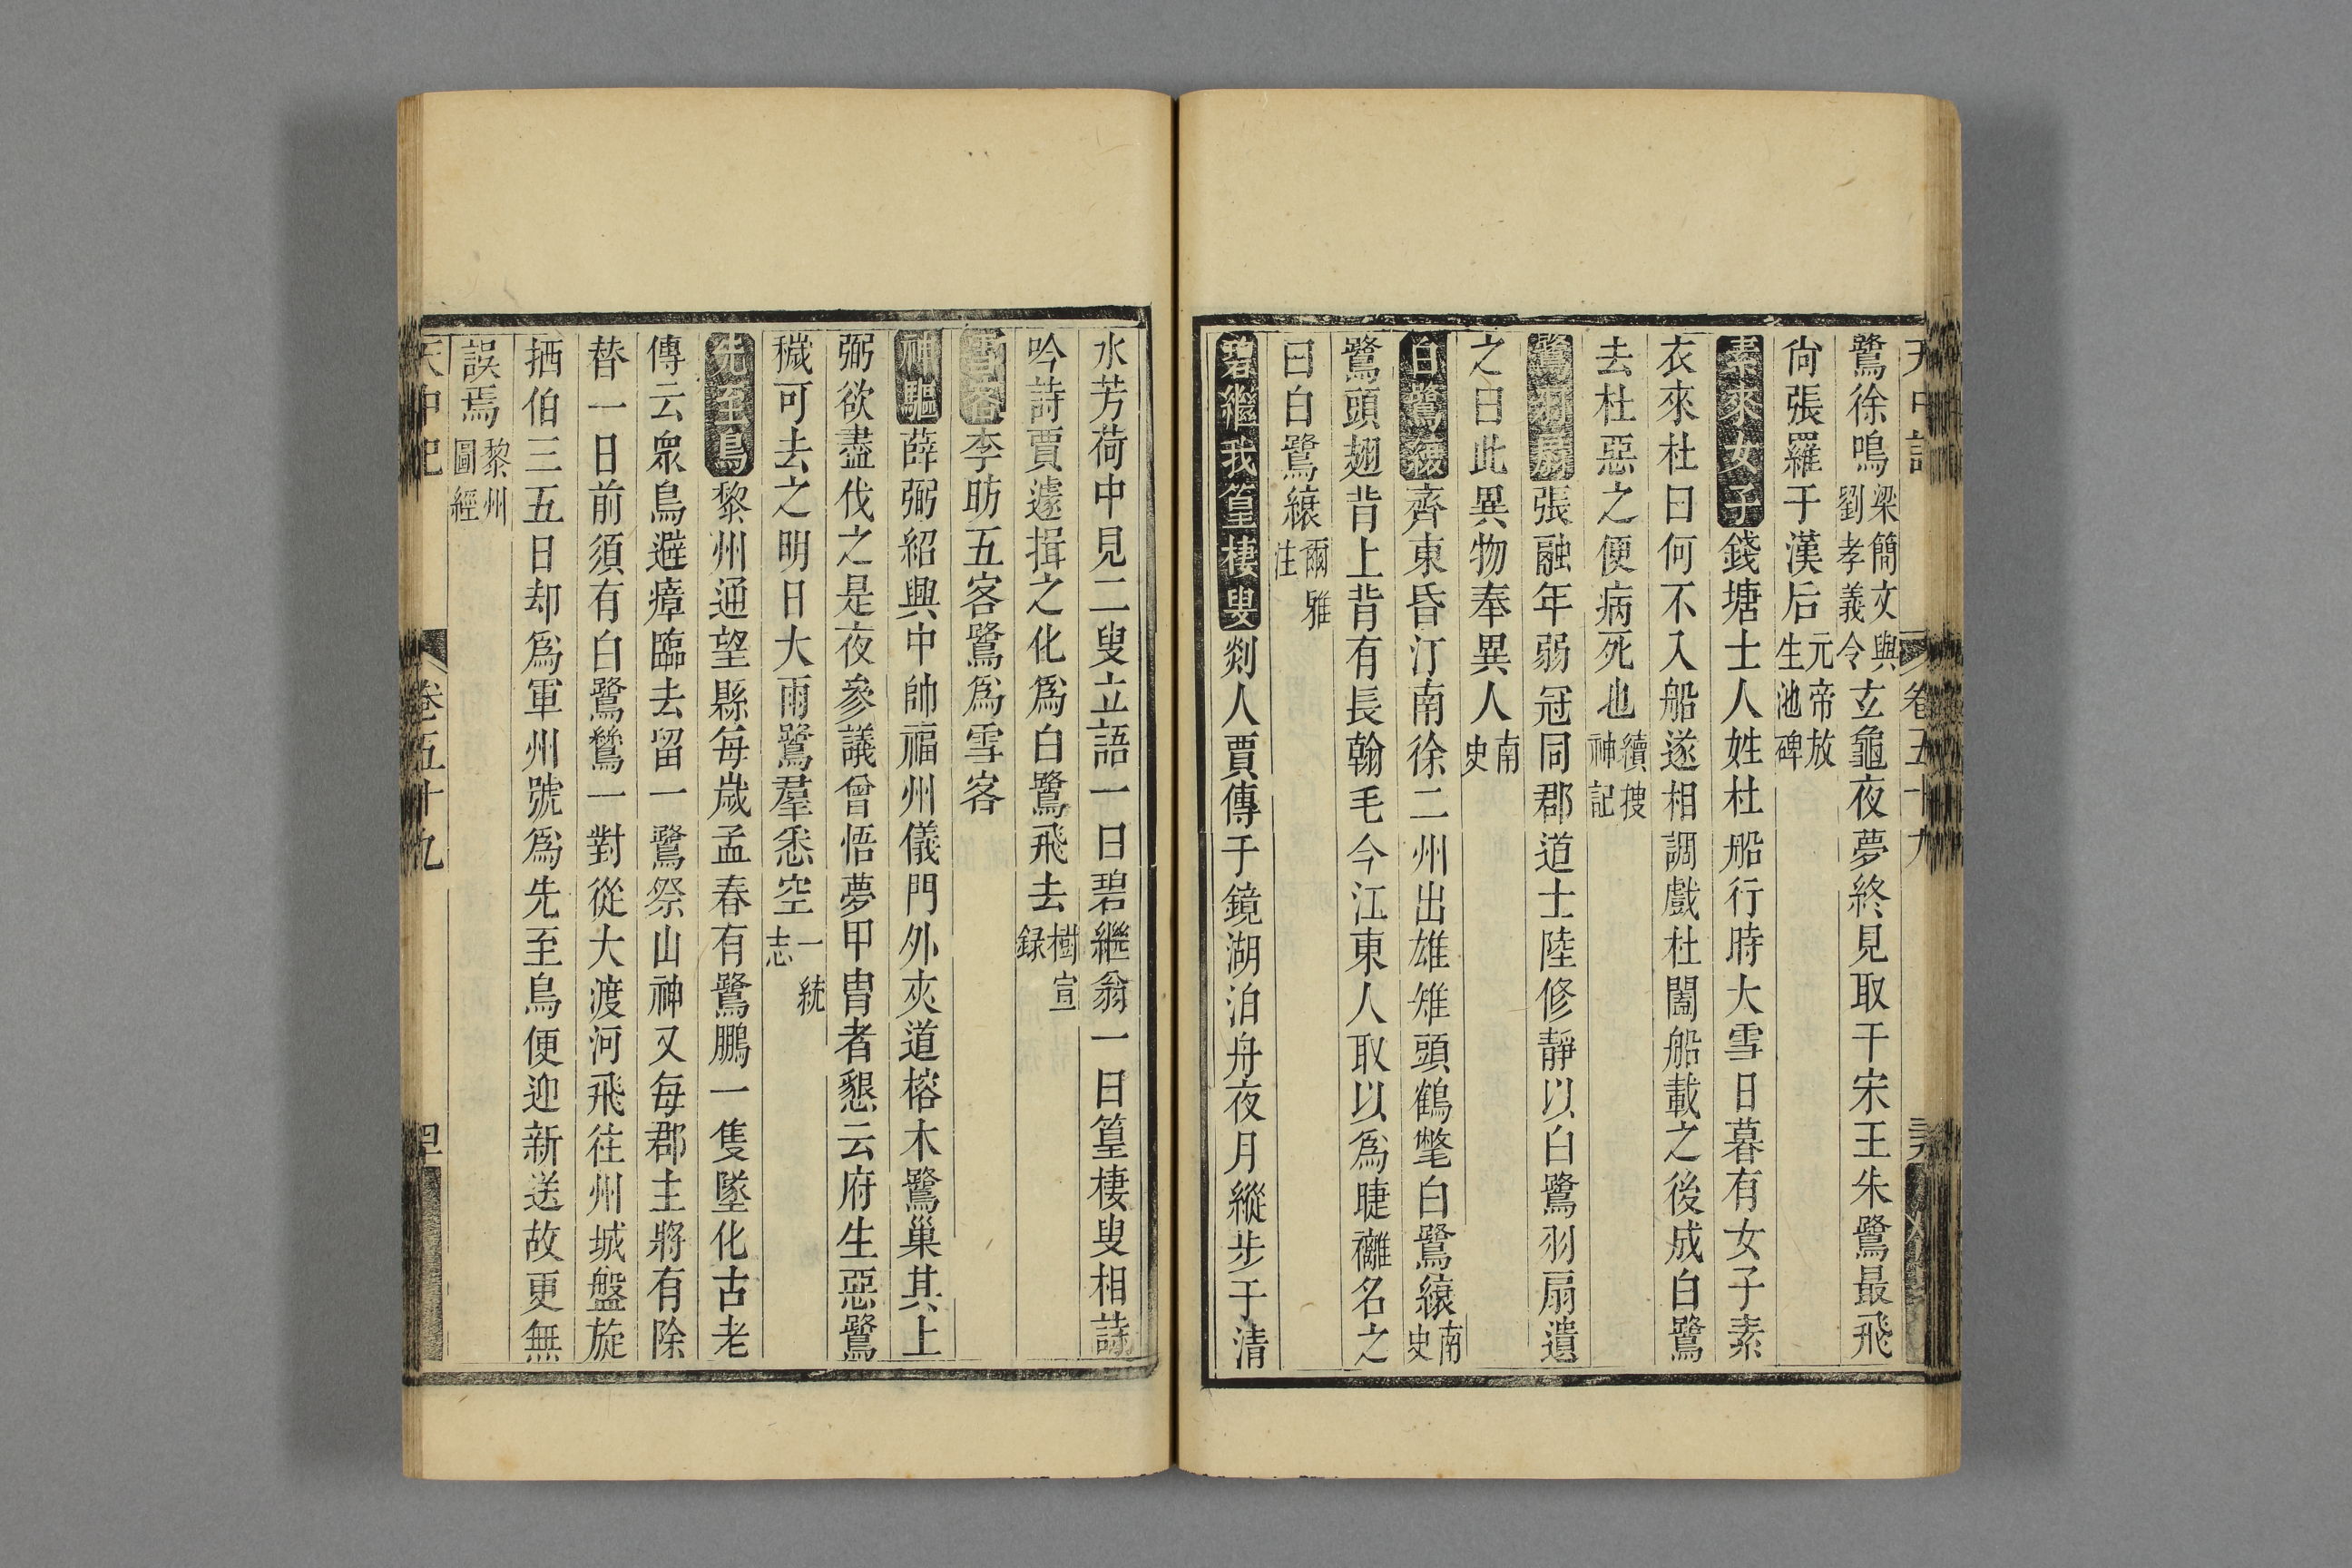 天中記 卷五十九
鷺徐鳴梁簡文與劉孝義令玄龜夜夢終見取于宋王朱鷺最飛
尙張羅于漢后元帝放生池碑
素來女子錢塘士人姓杜船行時大雪日暮有女子素
衣來杜曰何不入船遂相調戲杜闔船載之後成白鷺
去杜惡之便病死也續搜神記
鷺羽扇張融年弱冠同郡道士陸修靜以白鷺羽扇遺
之曰此異物奉異人南史
白鷺縗齊東昏汀南徐二州出雄雉頭鶴氅白鷺縗南史
鷺頭翅背上背有長翰毛今江東人取以爲睫䍦名之
曰白鷺縗爾雅注
碧繼我篁棲叟剡人賈傳于鏡湖泊舟夜月縱步于清
水芳荷中見二叟立語一曰碧繼翁一曰篁棲叟相詩
吟詩賈遽揖之化爲白鷺飛去樹宣録
雪客李昉五客鷺爲雪客
神驅薛弼紹興中帥福州儀門外夾道榕木鷺巢其上
弼欲盡伐之是夜參議曾悟夢甲冑者懇云府生惡鷺
穢可去之明日大雨鷺羣悉空一統志
先至鳥黎州通望縣每歲孟春有鷺鵬一隻墜化古老
傳云衆鳥避瘴臨去留一鷺祭山神又每郡主將有除
替一日前須有白鷺鶿一對從大渡河飛往州城盤旋
捿伯三五日却爲軍州號爲先至鳥便迎新送故更無
誤焉黎州圖經
天中記 卷五十九